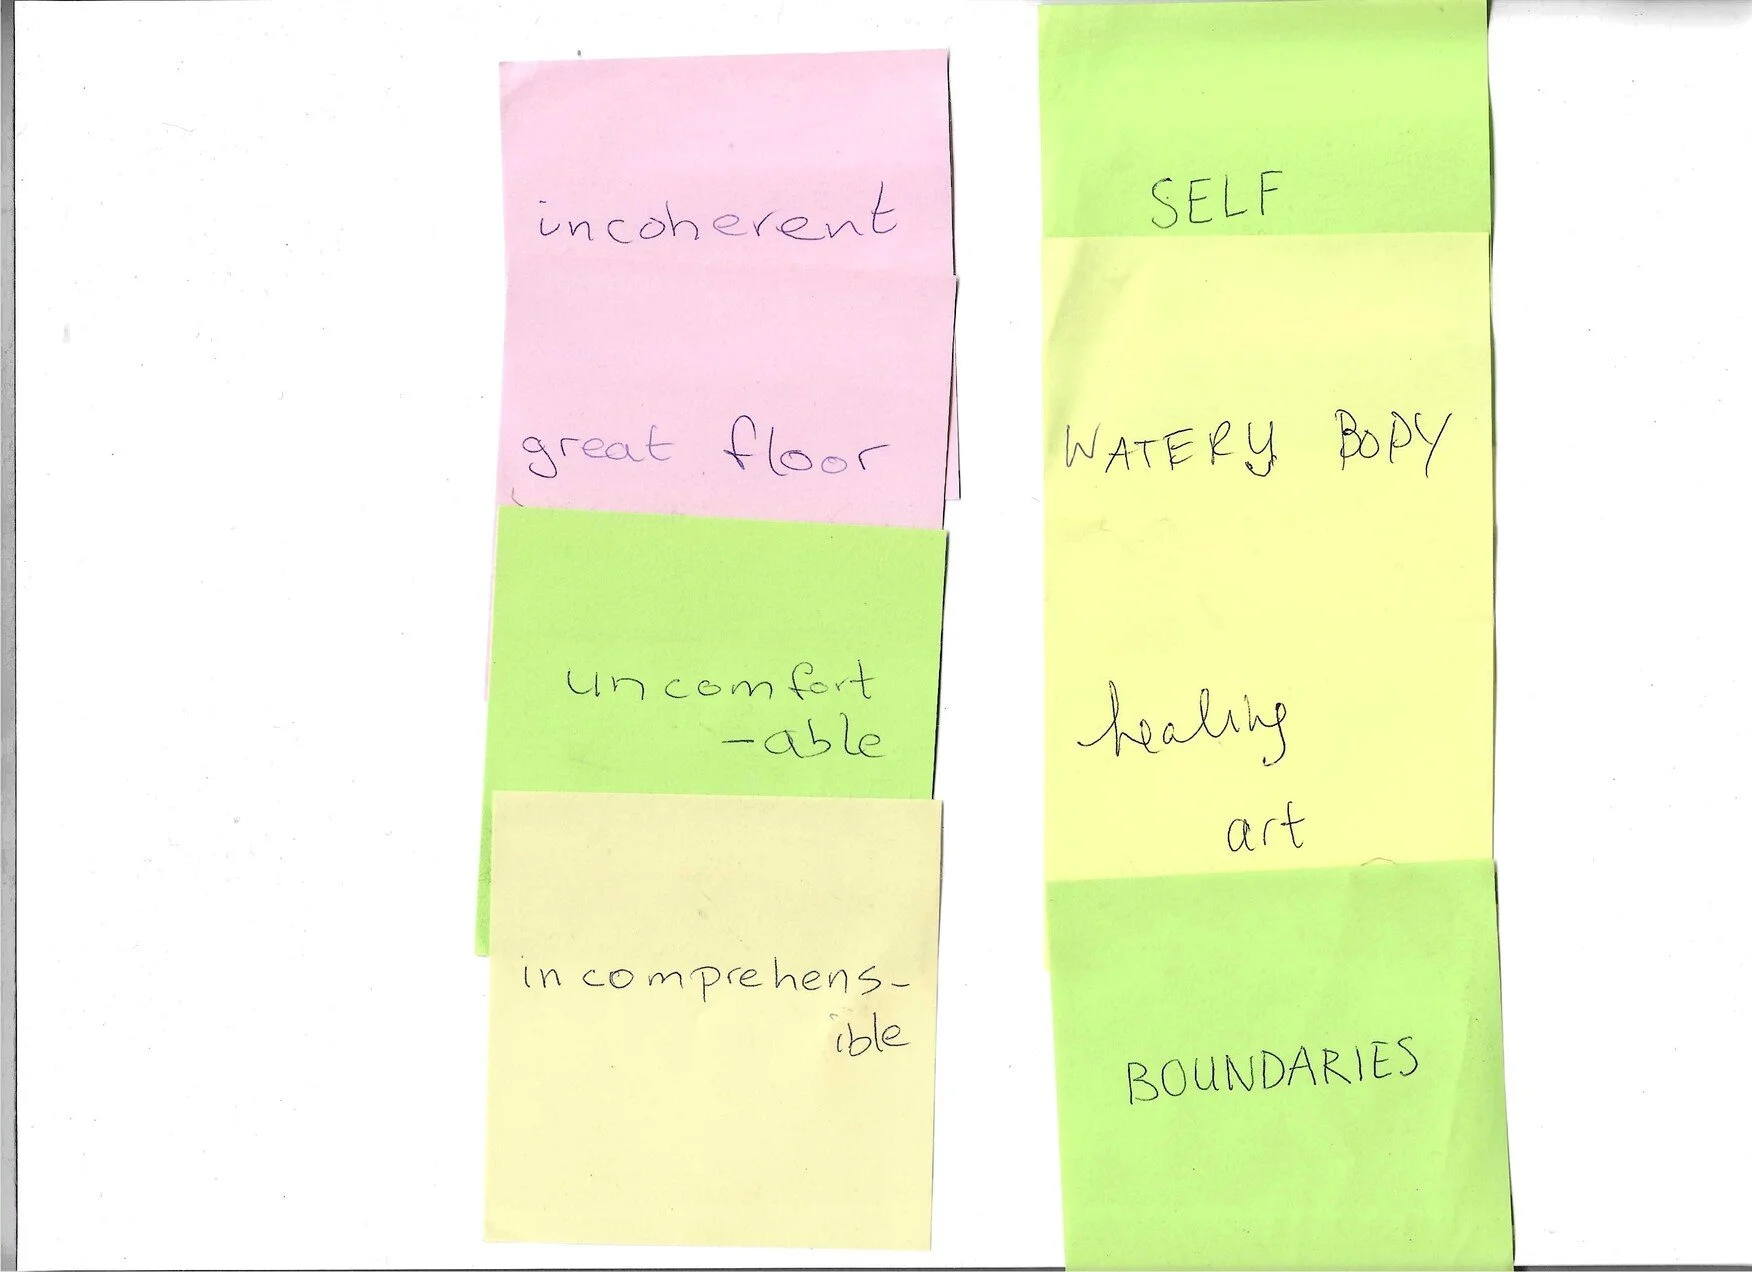 incoherent
great floor
uncomfort
-able
incomprehens-
ible
SELF
WATERY BODY
healing
art
BOUNDARIES